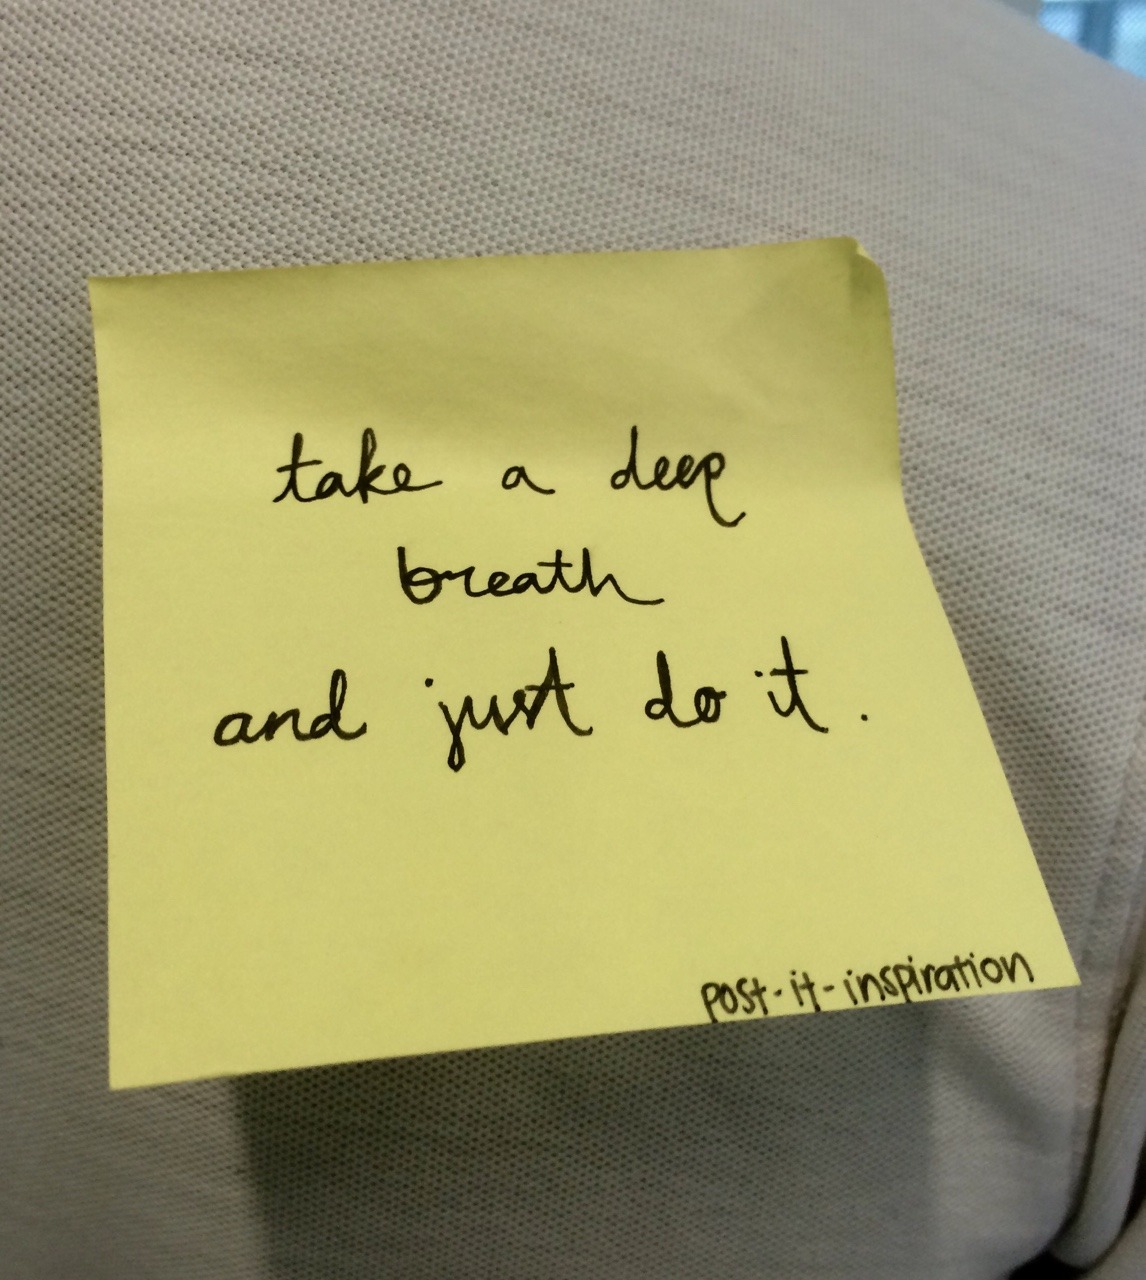 take a deep
breath
and just do it.
post-it-inspiration